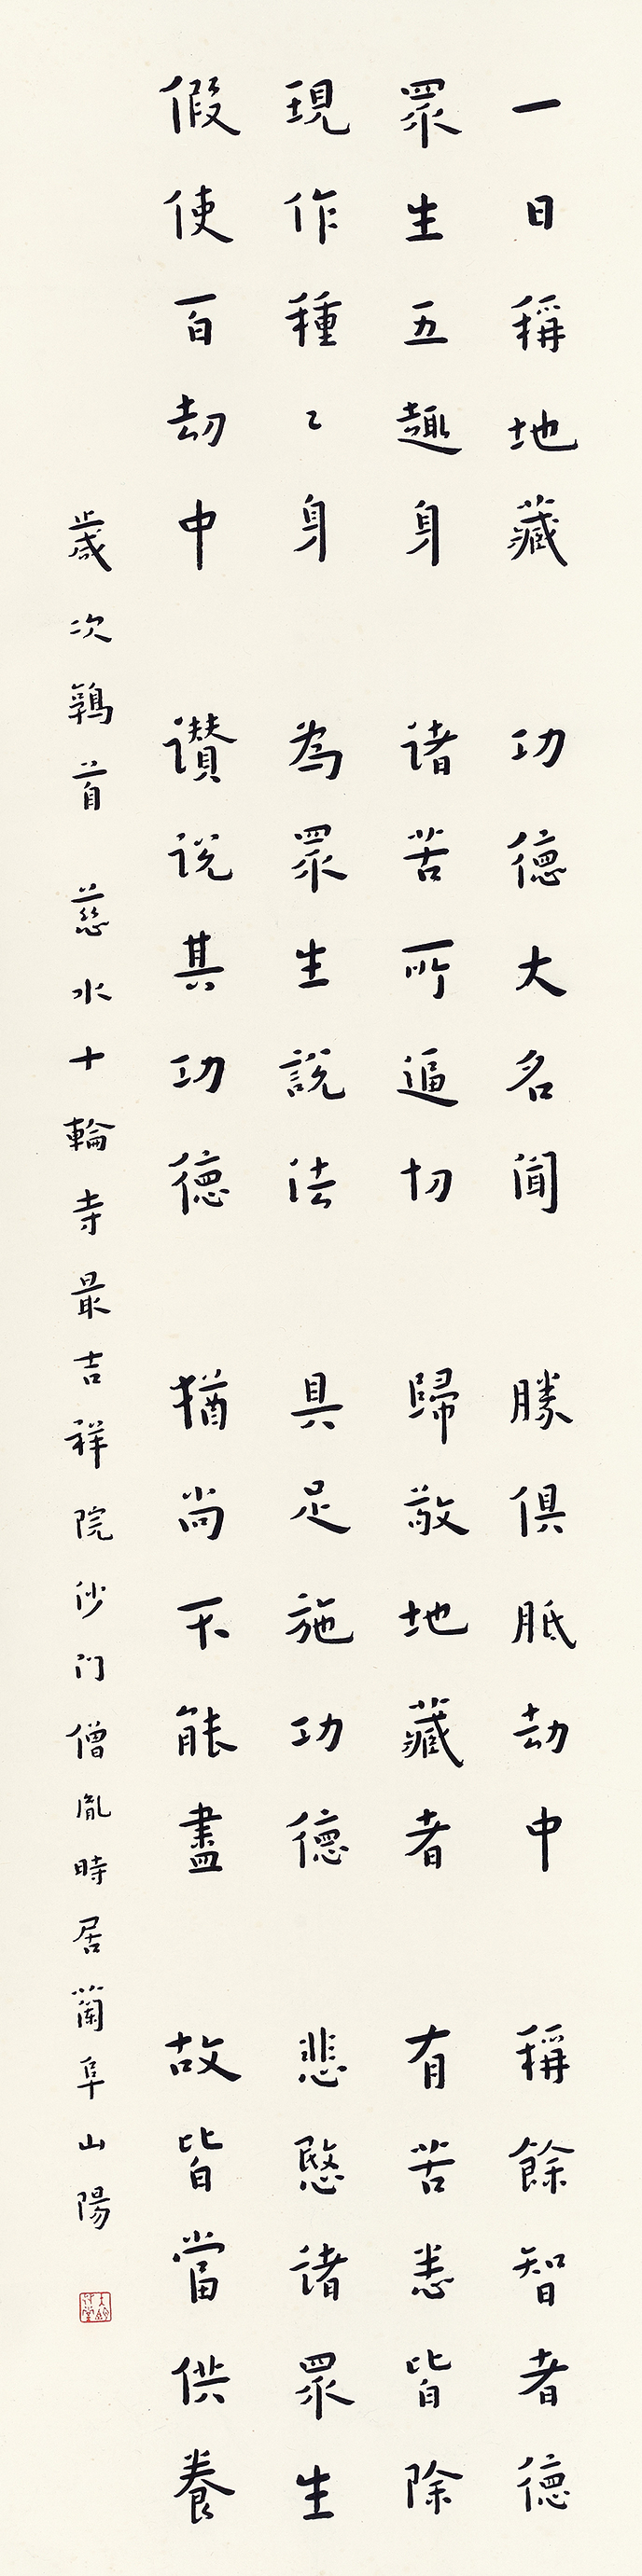 一日稱地藏 功德大名聞 勝俱胝劫中 稱餘智者德
眾生五趣身 诸苦所逼切 歸敬地藏者 有苦悉皆除
現作種〻身 為眾生説法 具足施功德 悲愍诸眾生
假使百劫中 讃说其功德 猶尚不能盡 故皆當供養
歲次鶉首 慈水十輪寺最吉祥院沙门僧胤時居蘭阜山陽